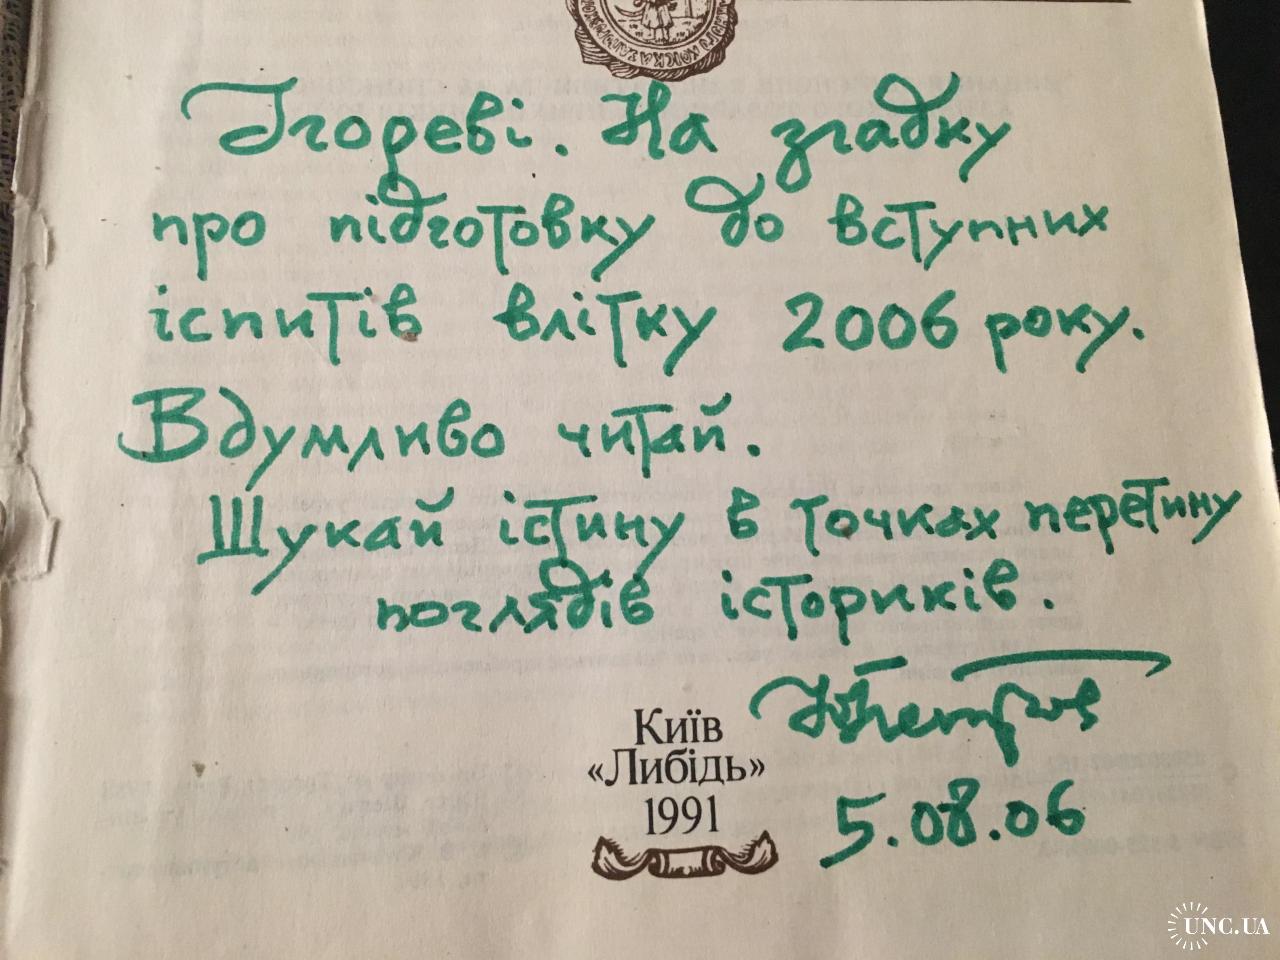 Ігореві. На згадку
про підготовку до вступних
іспитів влітку 2006 року.
Вдумливо читай.
Шукай істину в точках перетину
поглядів істориків.
Київ
«Либідь»
1991
5.08.06
UNC.UA